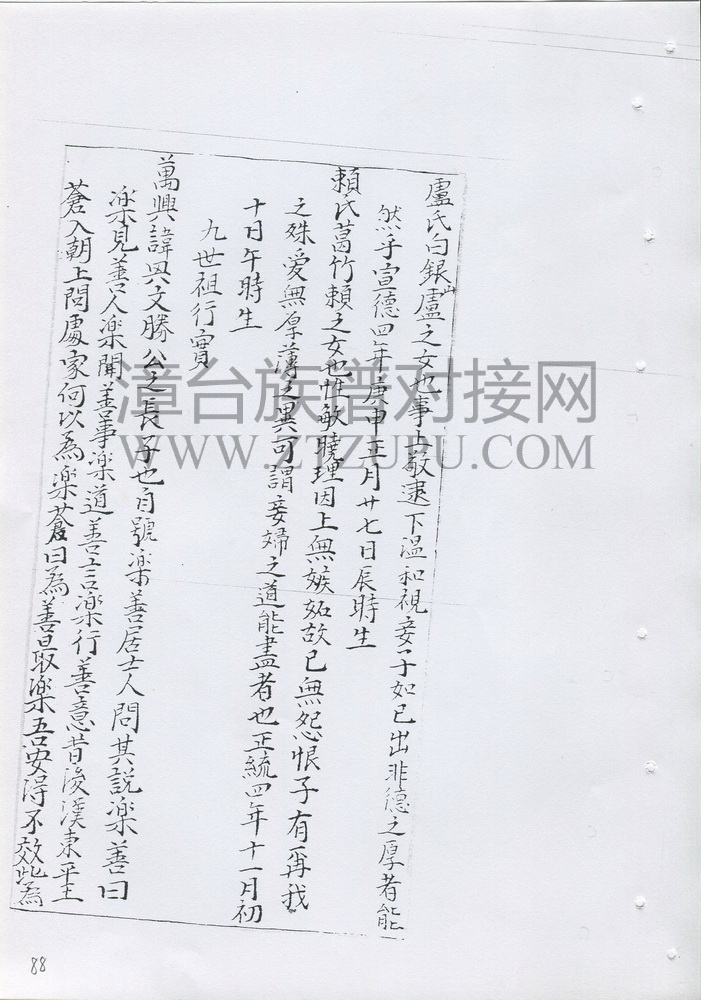 盧氏白銀山盧之女也事上敬逮下溫和視妾子如已出非德之厚者能
然乎宣德四年庚申正月廿七日辰時生
賴氏葛竹賴之女也性敏曉理因上無嫉妬故已無怨恨子有再我
之殊愛無厚薄之異可謂妾婦之道能盡者也正統四年十一月初
十日午時生
九世祖行實
萬興諱興文勝公之長子也自號楽善居士人問其說楽善曰
楽見善人楽聞善事楽道善言楽行善意昔後漢東平王
蒼入朝上問處家何以為楽蒼曰為善最楽吾安得不效此為
漳台族谱对接网
WWW.ZTZUPU.COM
88